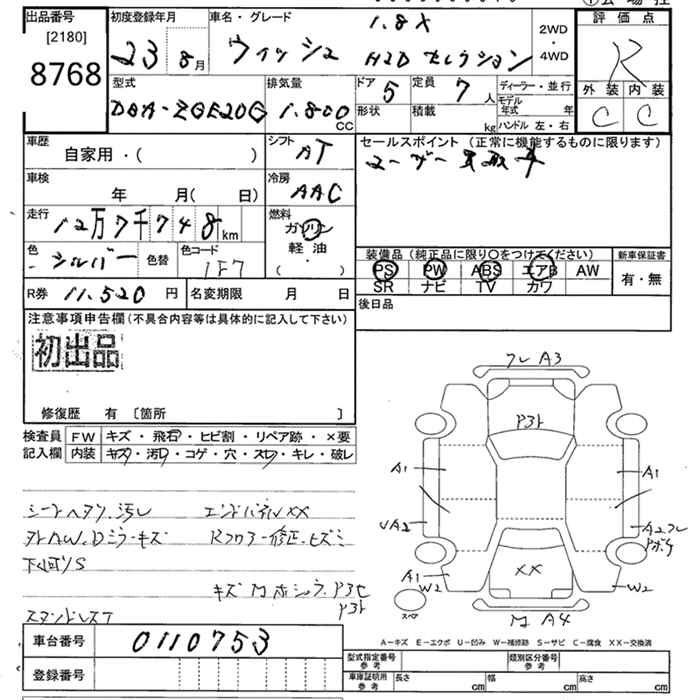 出品番号
[2180]
8768
初度登録年月
23 8月
車名・グレード
1.8X
ウィッシュ HID セレクション
2WD
・
4WD
評価点
R
外装 内装
C C
型式
DBA-ZGE20G
排気量
1.800 CC
ドア 5
定員 7 人
形状
積載 kg
ディーラー・並行
モデル年式 年
ハンドル 左・右
車歴
自家用・( )
シフト
AT
セールスポイント (正常に機能するものに限ります)
ユーザー買取車
車検
年 月( 日)
冷房
AAC
走行
12万7千748km
燃料
ガソリン
軽油
( ・ )
色
シルバー
色替
色コード
1F7
装備品 (純正品に限り○をつけてください)
PS PW ABS エアB AW
SR ナビ TV カワ
新車保証書
有・無
R券 11.520 円
名変期限 月 日
後日品
注意事項申告欄(不具合内容等は具体的に記入して下さい)
初出品
修復歴 有 〔箇所 〕
検査員
記入欄
FW キズ・飛石・ヒビ割・リペア跡・×要
内装 キズ・汚レ・コゲ・穴・スレ・キレ・破レ
フレ A3
P3ト
A1 A1
A2フレ
A1
W2
XX
W2
スペア
A4
シートヘタリ、汚レ エンドパネルXX
外AW、Dミラーキズ Rフロアー修正、ヒズミ
下回りS
スタンドレスT
A-キズ E-エクボ U-凹み W-補修跡 S-サビ C-腐食 XX-交換済
車台番号 0110753
登録番号
型式指定番号
参考
類別区分番号
参考
車庫証明用
参考
長さ cm 幅 cm 高さ cm